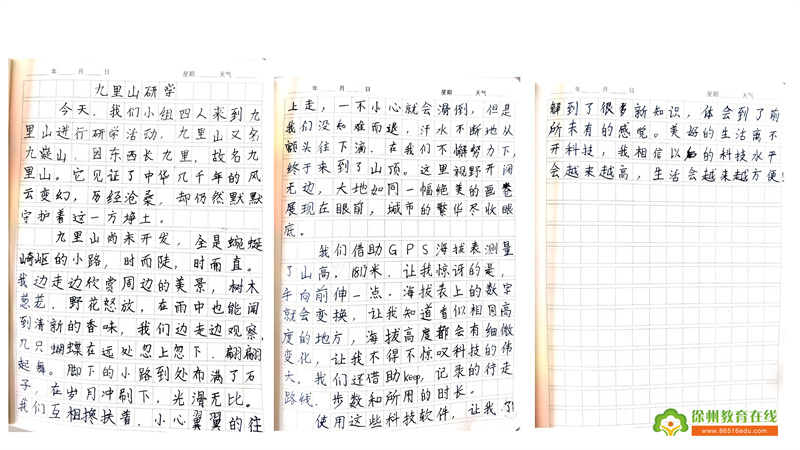 年 月 日 星期 天气
九里山研学
今天，我们小组四人来到九
里山进行研学活动，九里山又名
九嶷山，因东西长九里，故名九
里山。它见证了中华几千年的风
云变幻，历经沧桑，却仍然默默
守护着这一方净土。
九里山尚未开发，全是蜿蜒
崎岖的小路，时而陡，时而直。
我边走边欣赏周边的美景，树木
葱茏，野花怒放，在雨中也能闻
到清新的香味，我们边走边观察，
几只蝴蝶在远处忽上忽下，翩翩
起舞。脚下的小路到处布满了石
子，在岁月冲刷下，光滑无比。
我们互相搀扶着，小心翼翼的往
年 月 日 星期 天气
上走，一不小心就会滑倒，但是
我们没知难而退，汗水不断地从
额头往下滴，在我们不懈努力下，
终于来到了山顶。这里视野开阔
无边，大地如同一幅绝美的画卷
展现在眼前，城市的繁华尽收眼
底。
我们借助GPS海拔表测量
了山高，187米，让我惊讶的是，
手向前伸一点，海拔表上的数字
就会变换，让我知道看似相同高
度的地方，海拔高度都会有细微
变化，让我不得不惊叹科技的伟
大。我们还借助keep，记录的行走
路线，步数和所用的时长。
使用这些科技软件，让我了
年 月 日 星期 天气
解到了很多新知识，体会到了前
所未有的感觉。美好的生活离不
开科技，我相信以的科技水平
会越来越高，生活会越来越方便！
徐州教育在线
www.86516edu.com